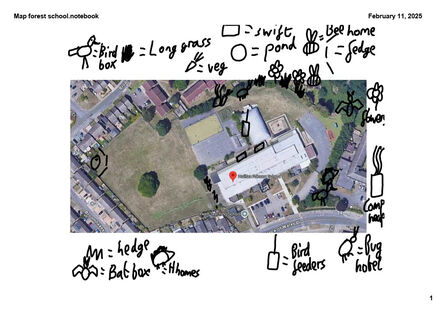 Map forest school.notebook
February 11, 2025
= Bird box
= Long grass
= veg
= swift
= pond
= Bee home
flower
comp heap
= hedge
= Bat box
= H homes
= Bird feeders
= Bug hotel
1